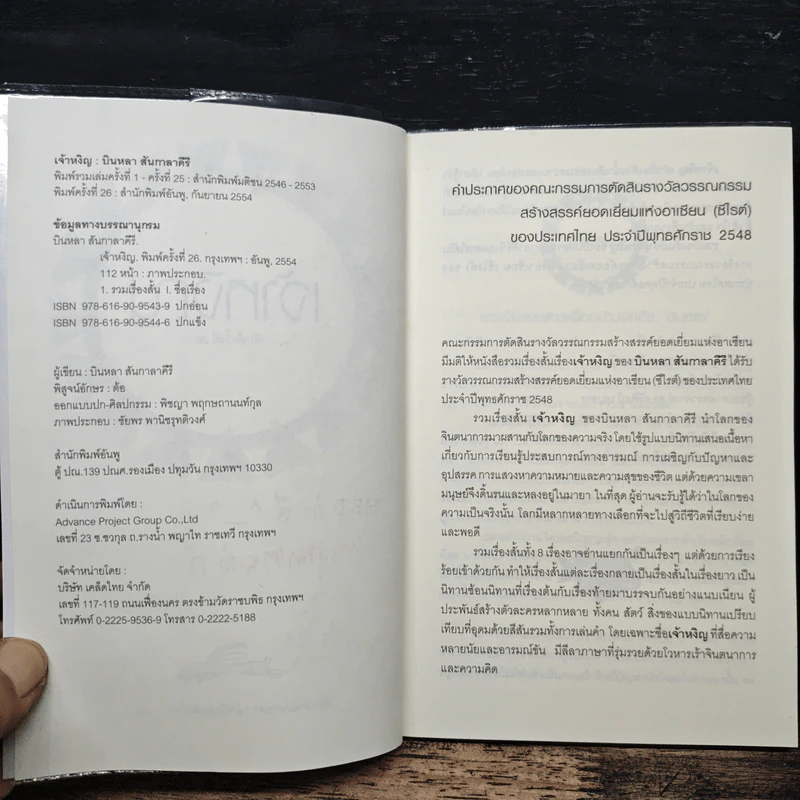 เจ้าหงิญ : บินหลา สันกาลาคีรี
พิมพ์รวมเล่มครั้งที่ 1 - ครั้งที่ 25 : สำนักพิมพ์มติชน 2546 - 2553
พิมพ์ครั้งที่ 26 : สำนักพิมพ์อันพู, กันยายน 2554
ข้อมูลทางบรรณานุกรม
บินหลา สันกาลาคีรี.
เจ้าหงิญ. พิมพ์ครั้งที่ 26. กรุงเทพฯ : อันพู, 2554
112 หน้า : ภาพประกอบ.
1. รวมเรื่องสั้น I. ชื่อเรื่อง
ISBN 978-616-90-9543-9 ปกอ่อน
ISBN 978-616-90-9544-6 ปกแข็ง
ผู้เขียน : บินหลา สันกาลาคีรี
พิสูจน์อักษร : ต้อ
ออกแบบปก-ศิลปกรรม : พิชญา พฤกษถานนท์กุล
ภาพประกอบ : ชัยพร พานิชรุทติวงศ์
สำนักพิมพ์อันพู
ตู้ ปณ.139 ปณศ.รองเมือง ปทุมวัน กรุงเทพฯ 10330
ดำเนินการพิมพ์โดย :
Advance Project Group Co.,Ltd
เลขที่ 23 ซ.ชวกุล ถ.รางน้ำ พญาไท ราชเทวี กรุงเทพฯ
จัดจำหน่ายโดย :
บริษัท เคล็ดไทย จำกัด
เลขที่ 117-119 ถนนเฟื่องนคร ตรงข้ามวัดราชบพิธ กรุงเทพฯ
โทรศัพท์ 0-2225-9536-9 โทรสาร 0-2222-5188
คำประกาศของคณะกรรมการตัดสินรางวัลวรรณกรรม
สร้างสรรค์ยอดเยี่ยมแห่งอาเซียน (ซีไรต์)
ของประเทศไทย ประจำปีพุทธศักราช 2548
คณะกรรมการตัดสินรางวัลวรรณกรรมสร้างสรรค์ยอดเยี่ยมแห่งอาเซียน
มีมติให้หนังสือรวมเรื่องสั้นเรื่องเจ้าหงิญ ของ บินหลา สันกาลาคีรี ได้รับ
รางวัลวรรณกรรมสร้างสรรค์ยอดเยี่ยมแห่งอาเซียน (ซีไรต์) ของประเทศไทย
ประจำปีพุทธศักราช 2548
รวมเรื่องสั้น เจ้าหงิญ ของบินหลา สันกาลาคีรี นำโลกของ
จินตนาการมาผสานกับโลกของความจริง โดยใช้รูปแบบนิทานเสนอเนื้อหา
เกี่ยวกับการเรียนรู้ประสบการณ์ทางอารมณ์ การเผชิญกับปัญหาและ
อุปสรรค การแสวงหาความหมายและความสุขของชีวิต แต่ด้วยความเขลา
มนุษย์จึงดิ้นรนและหลงอยู่ในมายา ในที่สุด ผู้อ่านจะรับรู้ได้ว่าในโลกของ
ความเป็นจริงนั้น โลกมีหลากหลายทางเลือกที่จะไปสู่วิถีชีวิตที่เรียบง่าย
และพอดี
รวมเรื่องสั้นทั้ง 8 เรื่องอาจอ่านแยกกันเป็นเรื่องๆ แต่ด้วยการเรียง
ร้อยเข้าด้วยกัน ทำให้เรื่องสั้นแต่ละเรื่องกลายเป็นเรื่องสั้นในเรื่องยาว เป็น
นิทานซ้อนนิทานที่เรื่องต้นกับเรื่องท้ายมาบรรจบกันอย่างแนบเนียน ผู้
ประพันธ์สร้างตัวละครหลากหลาย ทั้งคน สัตว์ สิ่งของแบบนิทานเปรียบ
เทียบที่อุดมด้วยสีสันรวมทั้งการเล่นคำ โดยเฉพาะชื่อเจ้าหงิญ ที่สื่อความ
หลายนัยและอารมณ์ขัน มีลีลาภาษาที่รุ่มรวยด้วยโวหารเร้าจินตนาการ
และความคิด